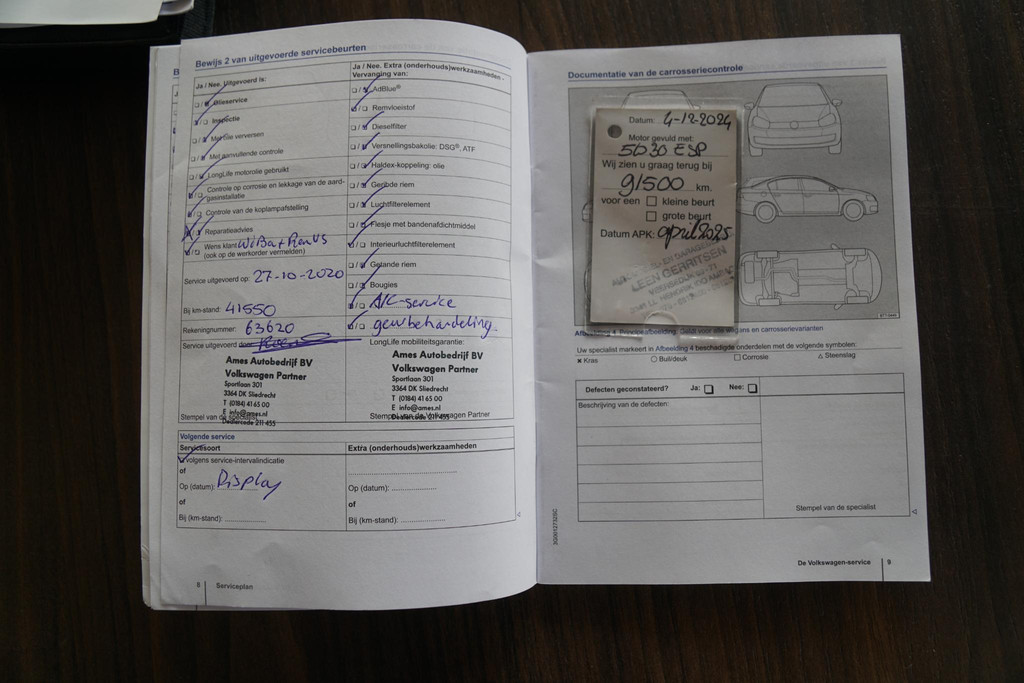 Bewijs 2 van uitgevoerde servicebeurten
Ja / Nee. Uitgevoerd is:
Olieservice
Inspectie
Met olie verversen
Met aanvullende controle
LongLife motorolie gebruikt
Controle op corrosie en lekkage van de aard-
gasinstallatie
Controle van de koplampafstelling
Reparatieadvies
Wens klant
(ook op de werkorder vermelden)
Service uitgevoerd op: 27-10-2020
Bij km-stand: 41550
Rekeningnummer: 63620
Service uitgevoerd door:
Ames Autobedrijf BV
Volkswagen Partner
Sportlaan 301
3364 DK Sliedrecht
T (0184) 41 65 00
E info@ames.nl
Dealercode 211 455
Stempel van de specialist
Ja / Nee. Extra (onderhouds)werkzaamheden.
Vervanging van:
AdBlue®
Remvloeistof
Dieselfilter
Versnellingsbakolie: DSG®, ATF
Haldex-koppeling: olie
Geribde riem
Luchtfilterelement
Flesje met bandenafdichtmiddel
Interieurluchtfilterelement
Getande riem
Bougies
A/C-service
geurbehandeling
LongLife mobiliteitsgarantie:
Ames Autobedrijf BV
Volkswagen Partner
Sportlaan 301
3364 DK Sliedrecht
T (0184) 41 65 00
E info@ames.nl
Dealercode 211 455
Stempel van de Volkswagen Partner
Volgende service
Servicesoort
volgens service-intervalindicatie
of
Op (datum): Display
of
Bij (km-stand):
Extra (onderhouds)werkzaamheden
Op (datum):
of
Bij (km-stand):
8 Serviceplan
Documentatie van de carrosseriecontrole
Datum: 4-12-2024
Motor gevuld met:
5W30 ESP
Wij zien u graag terug bij
91500 km.
voor een □ kleine beurt
□ grote beurt
Datum APK: april 2025
LEEN GERRITSEN
Afbeelding 4 Principe-afbeelding: Geldt voor alle wagens en carrosserievarianten
Uw specialist markeert in Afbeelding 4 beschadigde onderdelen met de volgende symbolen:
× Kras ○ Buil/deuk □ Corrosie △ Steenslag
Defecten geconstateerd? Ja: □ Nee: □
Beschrijving van de defecten:
Stempel van de specialist
De Volkswagen-service 9